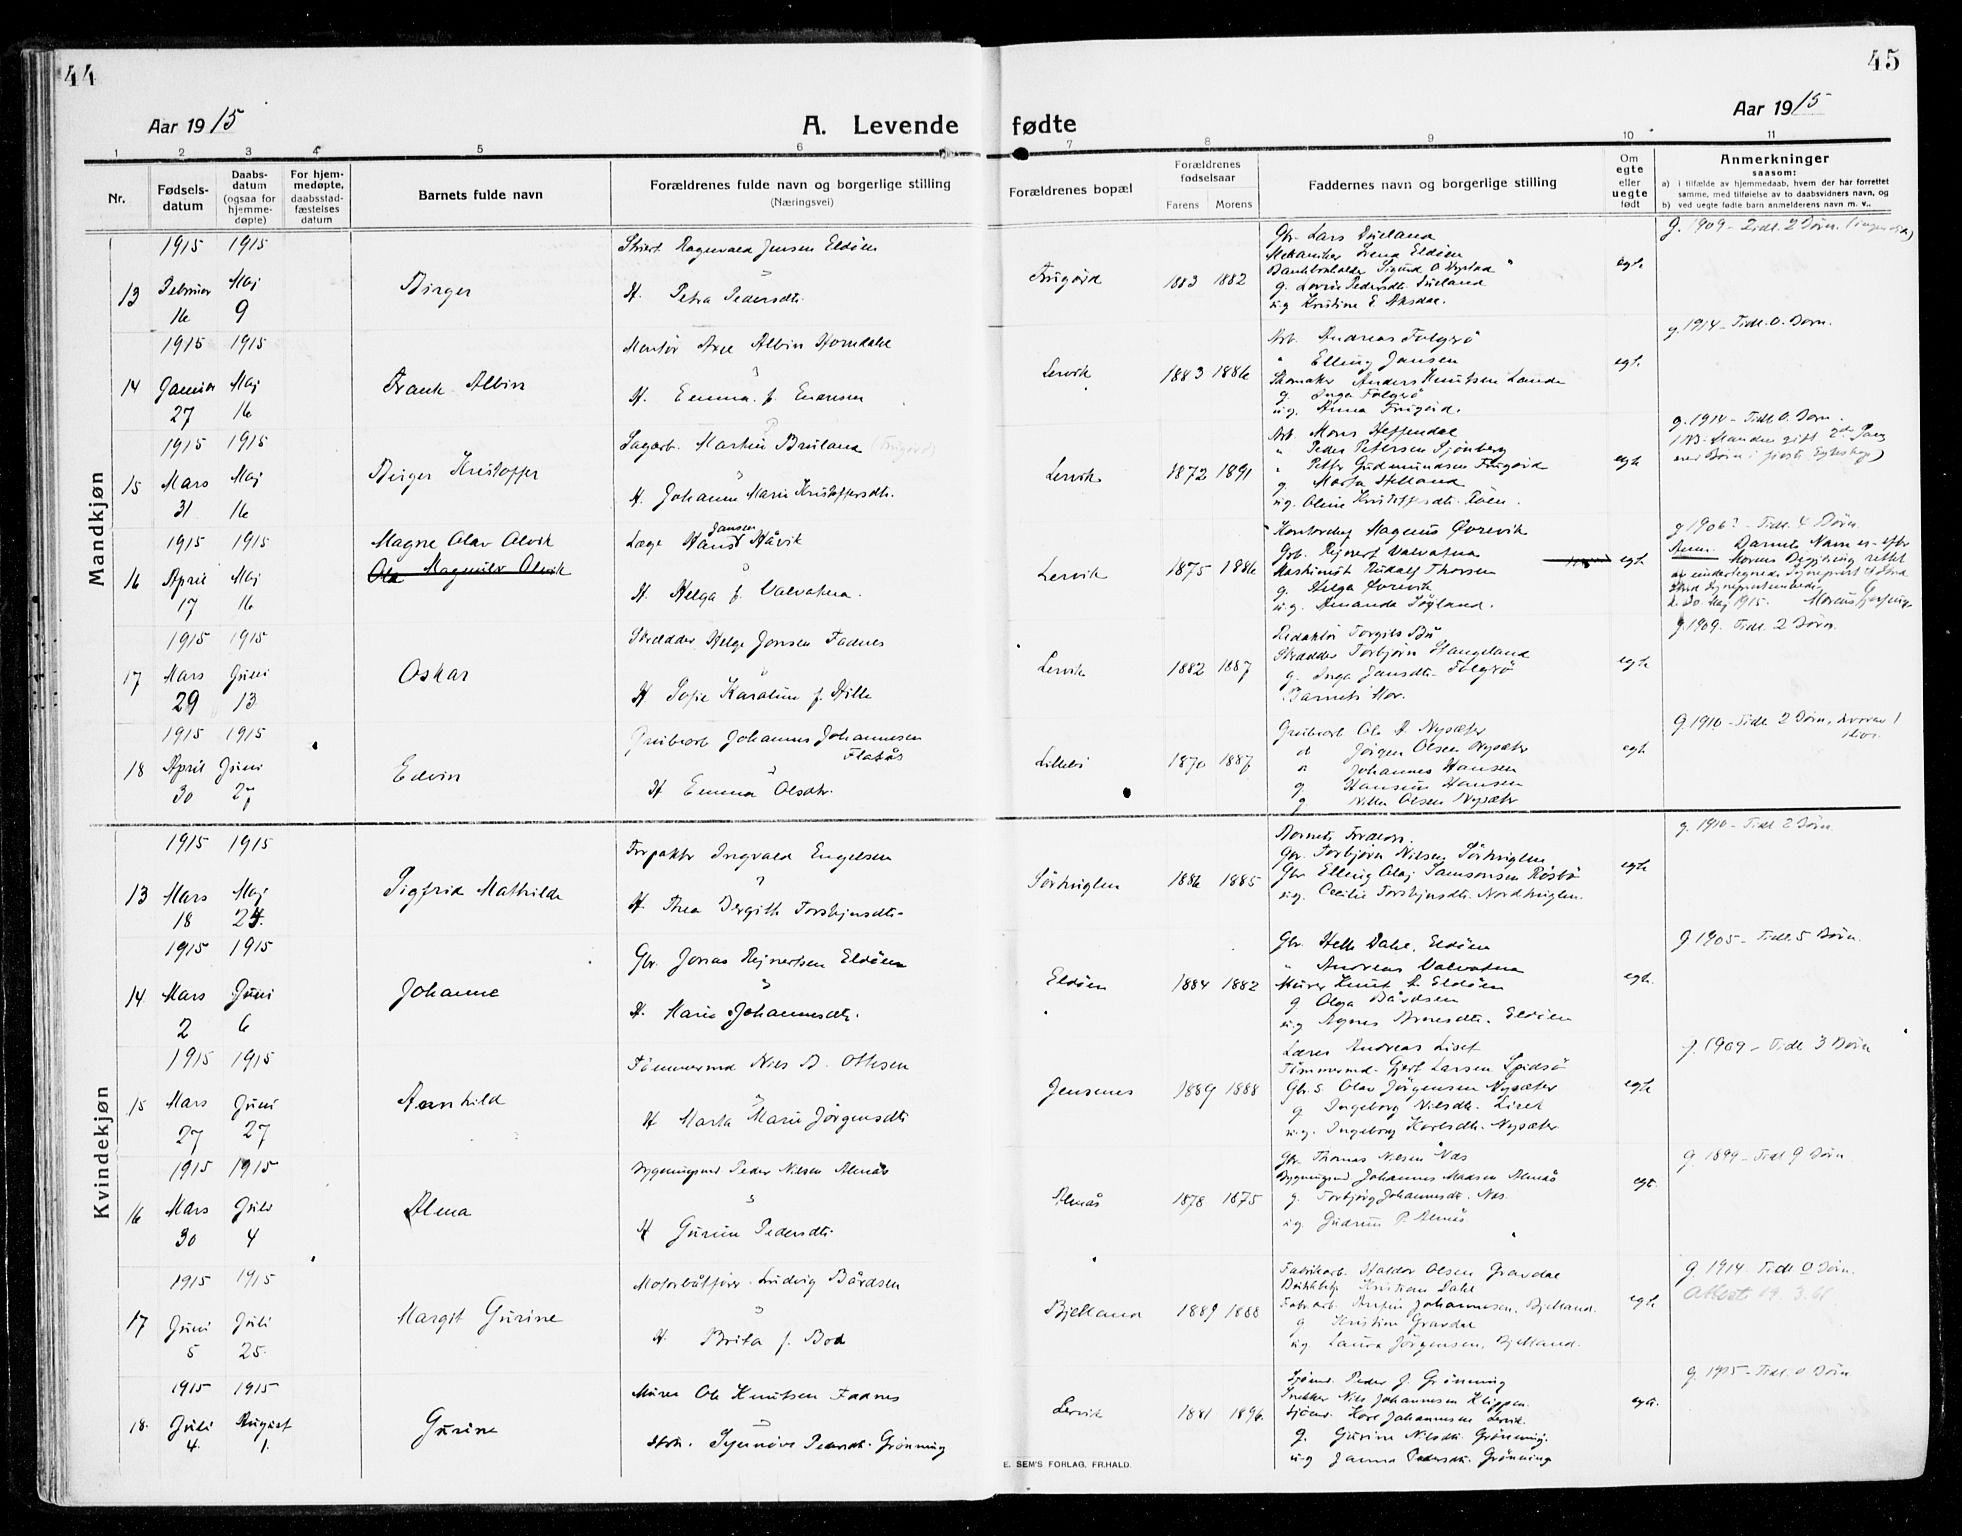 44
45
Aar 1915
A. Levende fødte
Aar 1915
1 2 3 4 5 6 7 8 9 10 11
Nr.
Fødsels-datum
Daabs-datum (ogsaa for hjemme-døpte)
For hjem-medøpte, daabsstad-fæstelses datum
Barnets fulde navn
Forældrenes fulde navn og borgerlige stilling
(Næringsvei)
Forældrenes bopæl
Forældrenes fødselsaar
Farens Morens
Faddernes navn og borgerlige stilling
Om egte eller uegte født
Anmerkninger
saasom:
a) i tilfælde av hjemmedaab, hvem der har forrettet
samme, med tilføielse av to daabsvidners navn, og
b) ved uegte fødte barn anmelderens navn m. v..
Mandkjøn
13
1915 Februar 16
1915 Maj 9
Birger
Ragnvald Jensen Eldøen
H. Petra Pedersdtr.
Frugård
1883 1882
Gbr. Lars Dueland
Mekaniker Lena Eldøen
g. Lovise Pedersdtr. Dueland
u.g. Kristine E. Aksdal.
egte
g. 1909 - Tidl. 2 Børn
14
1915 Januar 27
1915 Maj 16
Frank Albin
Montør Axe Albin Horndahl
H. Emma f. Endresen
Lervik
1883 1886
Arb. Andreas Folgerø
" Elling Jansen
Skomaker Anders Knutsen Lunde
g. Inga Folgerø
u.g. Anna Frugård.
egte
g. 1914 - Tidl. 0 Børn.
15
1915 Mars 31
1915 Maj 16
Birger Kristoffer
Sagarb. Martin Bruland (Frugård)
H. Johanne Marie Kristoffersdtr.
Lervik
1872 1891
Arb. Mons Heffendal
" Peder Petersen Sjønberg
" Petter Gudmundsen Frugård
g. Marta Helland
u.g. Oline Kristoffersdtr.
egte
g. 1914 - Tidl. 0 Børn.
16
1915 April 17
1915 Maj 16
Magne Olav Alvik
Ola Magnulv Alvik
Læge Hans Jansen Håvik
H. Helga f. Valvatna.
Lervik
1875 1886
Kontorchef Magnus Øvrevik
Grb. Rejnert Valvatna
Maskinist Rudolf Thorsen
g. Helga Øvrevik
u.g. Amanda
egte
g 1906? - Tidl. 4 Børn.
Anm. Barnets Navn er efter
Morens Begjæring rettet
av undertegnede Sogneprest
30 Maj 1915.
17
1915 Mars 29
1915 Juni 13
Oskar
Skrædder Helge Jonsen Fadnes
H Sofie Karoline f. Hille
Lervik
1882 1887
Redaktør Torgils Bu
Skrædder Torbjørn Stangeland
g. Inga Jansdtr. Folgerø
Barnets Mor.
egte
g. 1909. Tidl. 2 Børn.
18
1915 April 30
1915 Juni 27
Edvin
Grubearb Johannes Johannesen
Flatås
H Emma Olsdtr.
Lillebø
1870 1887
Grubearb Ole H Nysæter
d Jørgen Olsen Nysæter
" Johannes Hansen
g Hansine Hansen
g Nille Olsen Nysæter
egte
g 1910 - Tidl 2 Børn, hvorav 1
Kvindekjøn
13
1915 Mars 18
1915 Maj 24.
Sigfrid Mathilde
Forpakter Ingvald Engelsen
H. Thea Bergithe Torsteinsdtr.
Sørhuglen
1886 1885
Barnets Forældre.
Gbr. Torbjørn Nilsen Sørhuglen
Gbr Elling Olaj Samsonsen Røsbø
u.g. Cecilie Nordhuglen.
egte
g. 1910 - Tidl 2 Børn
14
1915 Mars 2
1915 Juni 6
Johanne
Gbr. Jonas Rejnertsen Eldøen
H. Marie Johannesdtr.
Eldøen
1884 1882
Gbr. Helle Dahl, Eldøen
" Andreas Valvatna
Murer Knut A. Eldøen
g Olga Bårdsen
u.g Agnes Arnesdtr. Eldøen
egte.
g 1905 - Tidl. 5 Børn.
15
1915 Mars 27
1915 Juni 27
Arnhild
Tømmermd Nils B. Ottesen
H Marta Marie Jørgensdtr
Jensenes
1889 1888
Lærer Andreas Liset
Tømmermd. Gjert Larsen Spidsø
Gbr.s. Olav Jørgensen Nysæter
g Ingeborg Nilsdtr. Liset
u.g. Ingeborg Karlsdtr. Nysæter
egte
g. 1909 - Tidl 3 Børn
16
1915 Mars 30
1915 Juli 4
Alma
Bygningsmd Peder Nilsen Almås
H Gurine Pedersdtr.
Almås
1878 1875
Gbr. Thomas Nilsen Næs
Bygningsmd Johannes Madsen Almås
g. Torbjørg Johannesdtr. Næs.
u.g Gudrun P. Almås
egte.
g. 1899 - Tidl 9 Børn
17
1915 Juni 5
1915 Juli 25.
Margit Gurine
Motorbåtfører Ludvig Bårdsen
H. Brita f. Bod
Bjelland
1889 1888
Fabrikarb. Haldor Olsen Gravdal
Kristian Dahl
Fabr.arb. Johannesen, Bjelland.
g Kristine Gravdal
u.g. Laura Jørgensen, Bjelland.
egte
g 1914 Tidl 0 Børn.
Attest 19.3.61
18.
1915 Juli 4.
1915 August 1.
Gurine
Murer Ole Knutsen Fadnes
H Synnøve Pedersdtr. Grønning
Lervik
1881 1896.
Sjømd. Peder J. Grønning
Snekker Nils Johannesen Klippen.
Sjømd. Karl Johannesen Lervik.
g. Gurine Nilsdtr. Grønning.
u.g Janna Pedersdtr. Grønning
egte.
g. 1915 - Tidl. 0 Børn
E. SEM'S FORLAG, FR.HALD.